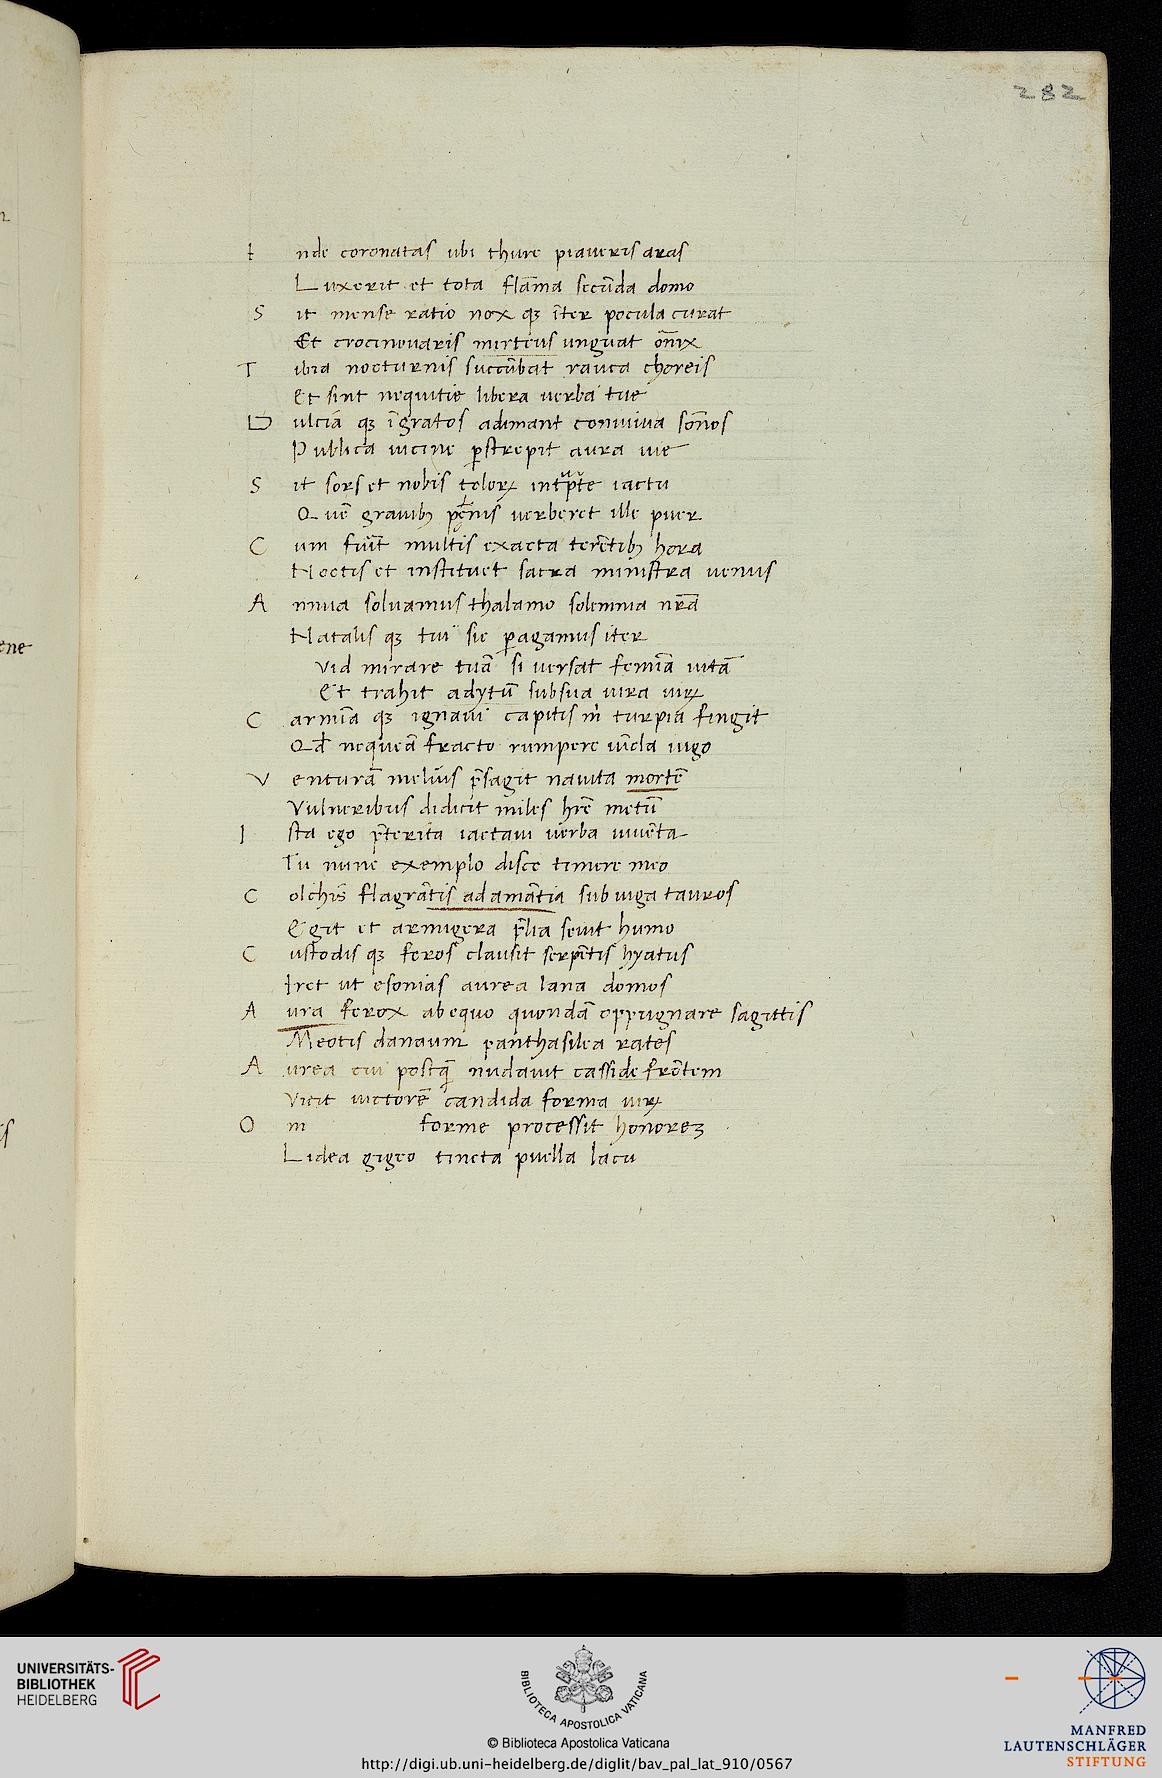 282
I nde coronatas ubi thure piaveris aras
Luxerit et tota flāma secūda domo
S it mense ratio nox qȝ īter pocula curat
Et crocinonaris mirteus unguat onix
T ibia nocturnis succūbat rauca choreis
Et sint nequitie libera verba tue
D ulcia qȝ īgratos adimant conviva sōnos
Publica vicine pstrepit aura vie
S it sors et nobis iactu
Quē gravibȝ verberet ille puer
C um fuit multis exacta terētibȝ hora
Noctis et instituet sacra ministra venus
A nnua solvamus thalamo solemnia nrā
Natalis qȝ tui sic pagamus iter
vid mirare tuā si versat femīa vitā
Et trahit adytū sub sua iura virꝝ
C armīa qȝ ignavi capitis m turpia fingit
Qd nequeā fracto rumpere vīcla iugo
V enturā melius psagit navita mortē
Vulneribus didicit miles hre metū
I sta ego pterita iactavi verba iuvēta
Tu nunc exemplo disce timere meo
C olchis flagrātis adamātia sub iuga tauros
Egit et armigera plia sevit humo
C ustodis qȝ feros clausit serpētis hyatus
Iret ut esonias aurea lana domos
A ura ferox ab equo quondā oppugnare sagittis
Meotis danaum panthasilea rates
A urea cui postq nudavit casside frōtem
Vicit victorē candida forma virꝝ
O m forme processit honoreȝ
Lidea gigeo tincta puella lacu
ene
UNIVERSITÄTS-
BIBLIOTHEK
HEIDELBERG
BIBLIOTECA APOSTOLICA VATICANA
© Biblioteca Apostolica Vaticana
http://digi.ub.uni-heidelberg.de/diglit/bav_pal_lat_910/0567
MANFRED
LAUTENSCHLÄGER
STIFTUNG